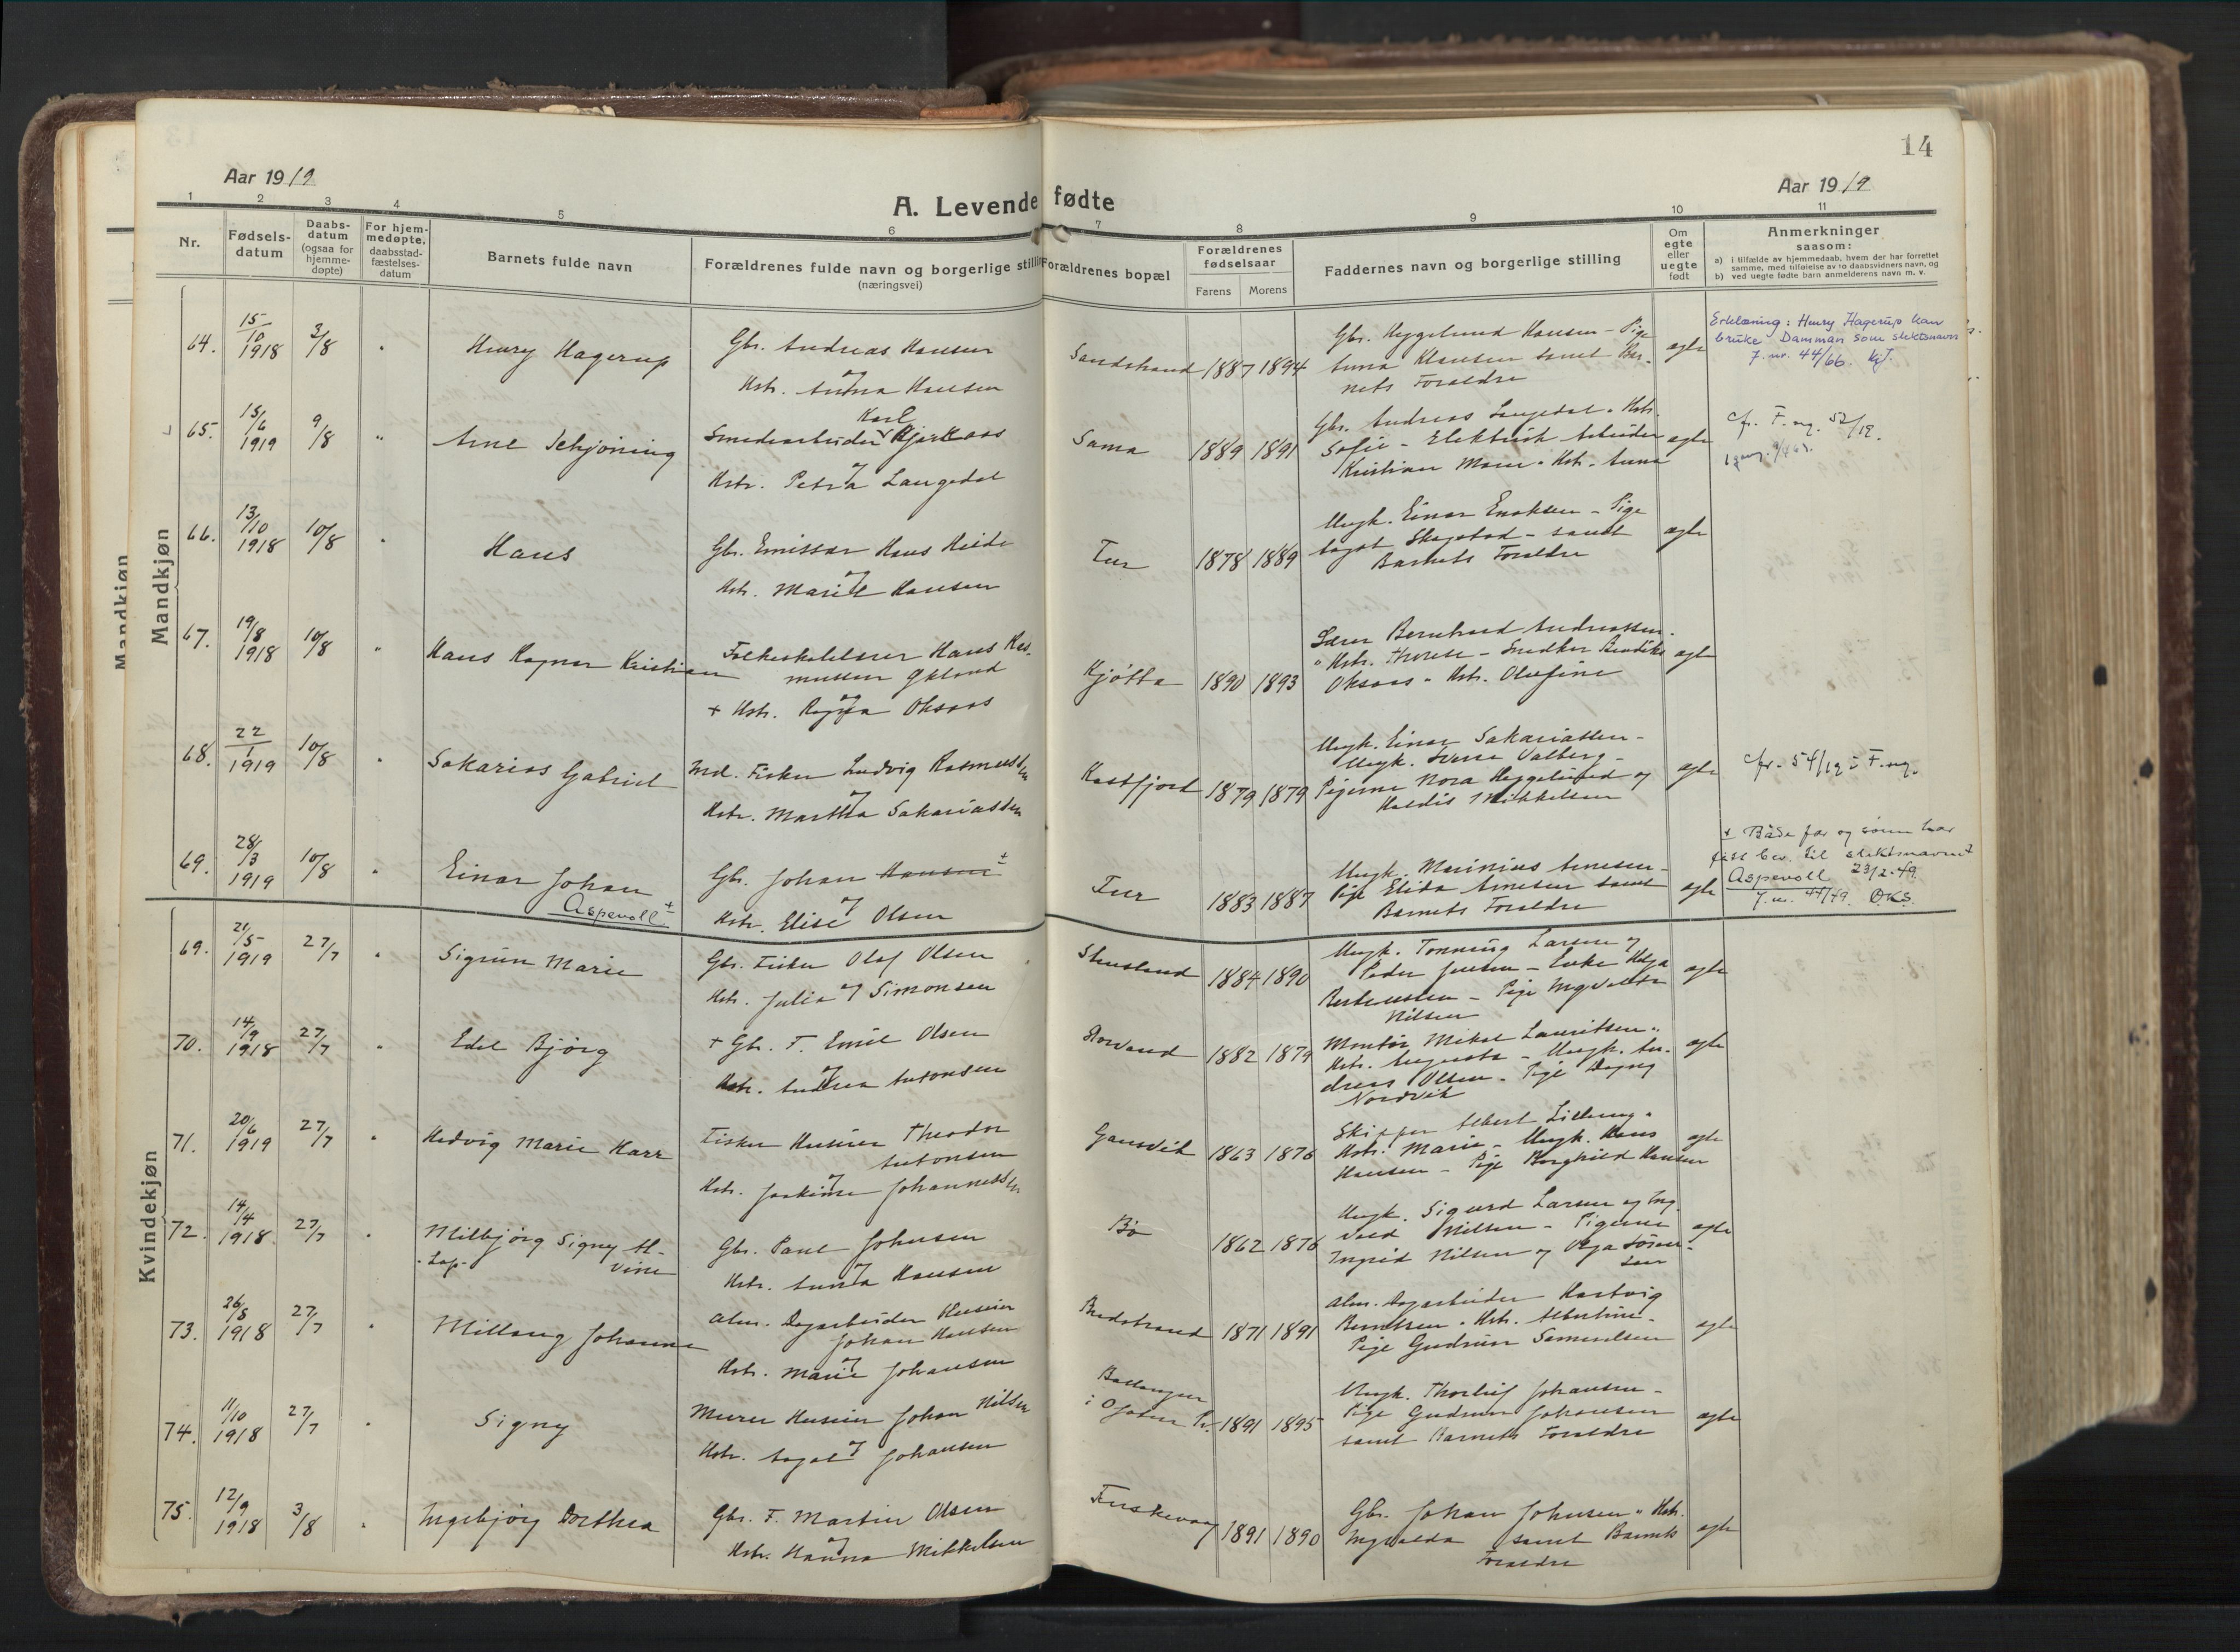 14
Aar 1919
A. Levende fødte
Aar 1919
1 2 3 4 5 6 7 8 9 10 11
Nr.
Fødsels-
datum
Daabs-
datum
(ogsaa for
hjemme-
døpte)
For hjem-
medøpte,
daabsstad-
fæstelses-
datum
Barnets fulde navn
Forældrenes fulde navn og borgerlige stilling
(næringsvei)
Forældrenes bopæl
Forældrenes
fødselsaar
Farens Morens
Faddernes navn og borgerlige stilling
Om
egte
eller
uegte
født
Anmerkninger
saasom:
a) i tilfælde av hjemmedaab, hvem der har forrettet
samme, med tilføielse av to daabsvidners navn, og
b) ved uegte født barn anmelderens navn m. v.
Mandkjøn
Mandkjøn
64. 15/10 1918 3/8 Henry Hagerup
Gbr. Andreas Hansen
og
Hstr. Anna Hansen
Sandstrand 1887 1894
Gbr. Heggelund Hansen - Pige
Anna Hansen samt Bar-
nets Foraldre
egte
Erklæring: Henry Hagerup kan
bruke Damman som slektsnavn
J. nr. 44/66. KJ.
65. 15/6 1919 9/8 Arne Schjöning
Karl
Smedearbeider
og
Hstr. Petra Langedal
Sama 1889 1891
Gbr. Andreas Langedal. Hstr.
Sofie - Elektrisk Arbeider
Kristian Moen. Hstr. Anna
egte
cfr. F. ng. 52/19.
66. 13/10 1918 10/8 Hans
Gbr. Emissær Hans Hilde
og
Hstr. Marie Hansen
1878 1889
Ungk. Einar Enoksen - Pige
Aagot Skogstad - samt
Barnets Foraldre
egte
67. 19/8 1918 10/8 Hans Ragnar Kristian
Folkeskolelærer Hans Ras-
mussen
og
+ Hstr. Ragna Oksaas
Kjøtta 1890 1893
Lærer Bernhard Andreassen.
" Hstr. Therese - Snedker
Oksaas " Hstr. Olufine
egte
68. 22/1 1919 10/8 Sakarias Gabriel
Ind. Fisker Ludvig Rasmussen
og
Hstr. Martha Sakariassen
Kastfjord 1879 1879
Ungk. Einar Sakariassen -
Ungk. Sverre Valberg -
Pigerne Nora Heggelund og
Haldis Mikkelsen
egte
cfr. 54/19 i F. ng.
69. 28/3 1919 10/8 Einar Johan
Aspevoll +
Gbr. Johan Hansen +
og
Hstr. Elise Olsen
1883 1887
Ungk. Marinius Arnesen -
Pige Elida Arnesen samt
Barnets Foraldre
egte
+ Både far og sønn har
fått bev. til slektsnavnet
Aspevoll 23/2-49.
J. nr. 44/49. O.K.S.
Kvindekjøn
69. 21/5 1919 27/7 Sigrun Marie
Gbr. Fisker Olaf Olsen
Hstr. Julia og Simonsen
Stensland 1884 1890
Ungk. Tonning Larsen og
Peder Jensen - Enke Helga
Pige Ingvalda
Nilsen
egte
70. 14/9 1918 27/7 Edel Bjørg
+ Gbr. F. Emil Olsen
og
Hstr. Andrea Antonsen
Storvand 1882 1879
Montør Mikal Lauritsen "
Hstr. Augusta - Ungk. An-
dreas Olsen - Pige Dagny
Nordvik
egte
71. 20/6 1919 27/7 Hedvig Marie Karr
Fisker Husmand Theodor
Antonsen
og
Hstr. Joakime Johannessen
Gausvik 1863 1876
Skipper Albert Lilleng "
Hstr. Marie - Ungk. Hans
Hansen - Pige Borghild Hansen
egte
72. 14/4 1918 27/7 Milbjørg Signy Al-
- Lap - vine
Gbr. Paul Johnsen
og
Hstr. Anna Hansen
Bø 1862 1876
Ungk. Sigurd Larsen og Ing-
vald Nilsen - Pigerne
Ingrid Nilsen og Olga Søren-
sen
egte
73. 26/5 1918 27/7 Millaug Johanne
Alm. Dagarbeider Husmand
Johan Hansen
og
Hstr. Marie Johansen
Breistrand 1871 1891
Alm. Dagarbeider Hartvig
Berntsen " Hstr. Albertine -
Pige Gudrun Samuelsen
egte
74. 11/10 1918 27/7 Signy
Murer Husmand Johan Nilsen
Hstr. Aagot og Johansen
Ballangen
i Ofoten Pr. 1891 1895
Ungk. Thorleif Johansen -
Pige Gudrun Johansen
samt Barnets Foraldre
egte
75. 12/9 1918 3/8 Ingebjørg Dorthea
Gbr. F. Martin Olsen
og
Hstr. Hanna Mikkelsen
Fuskevaag 1891 1890
Gbr. Johan Johnsen " Hstr.
Ingvalda samt Barnets
Foraldre
egte